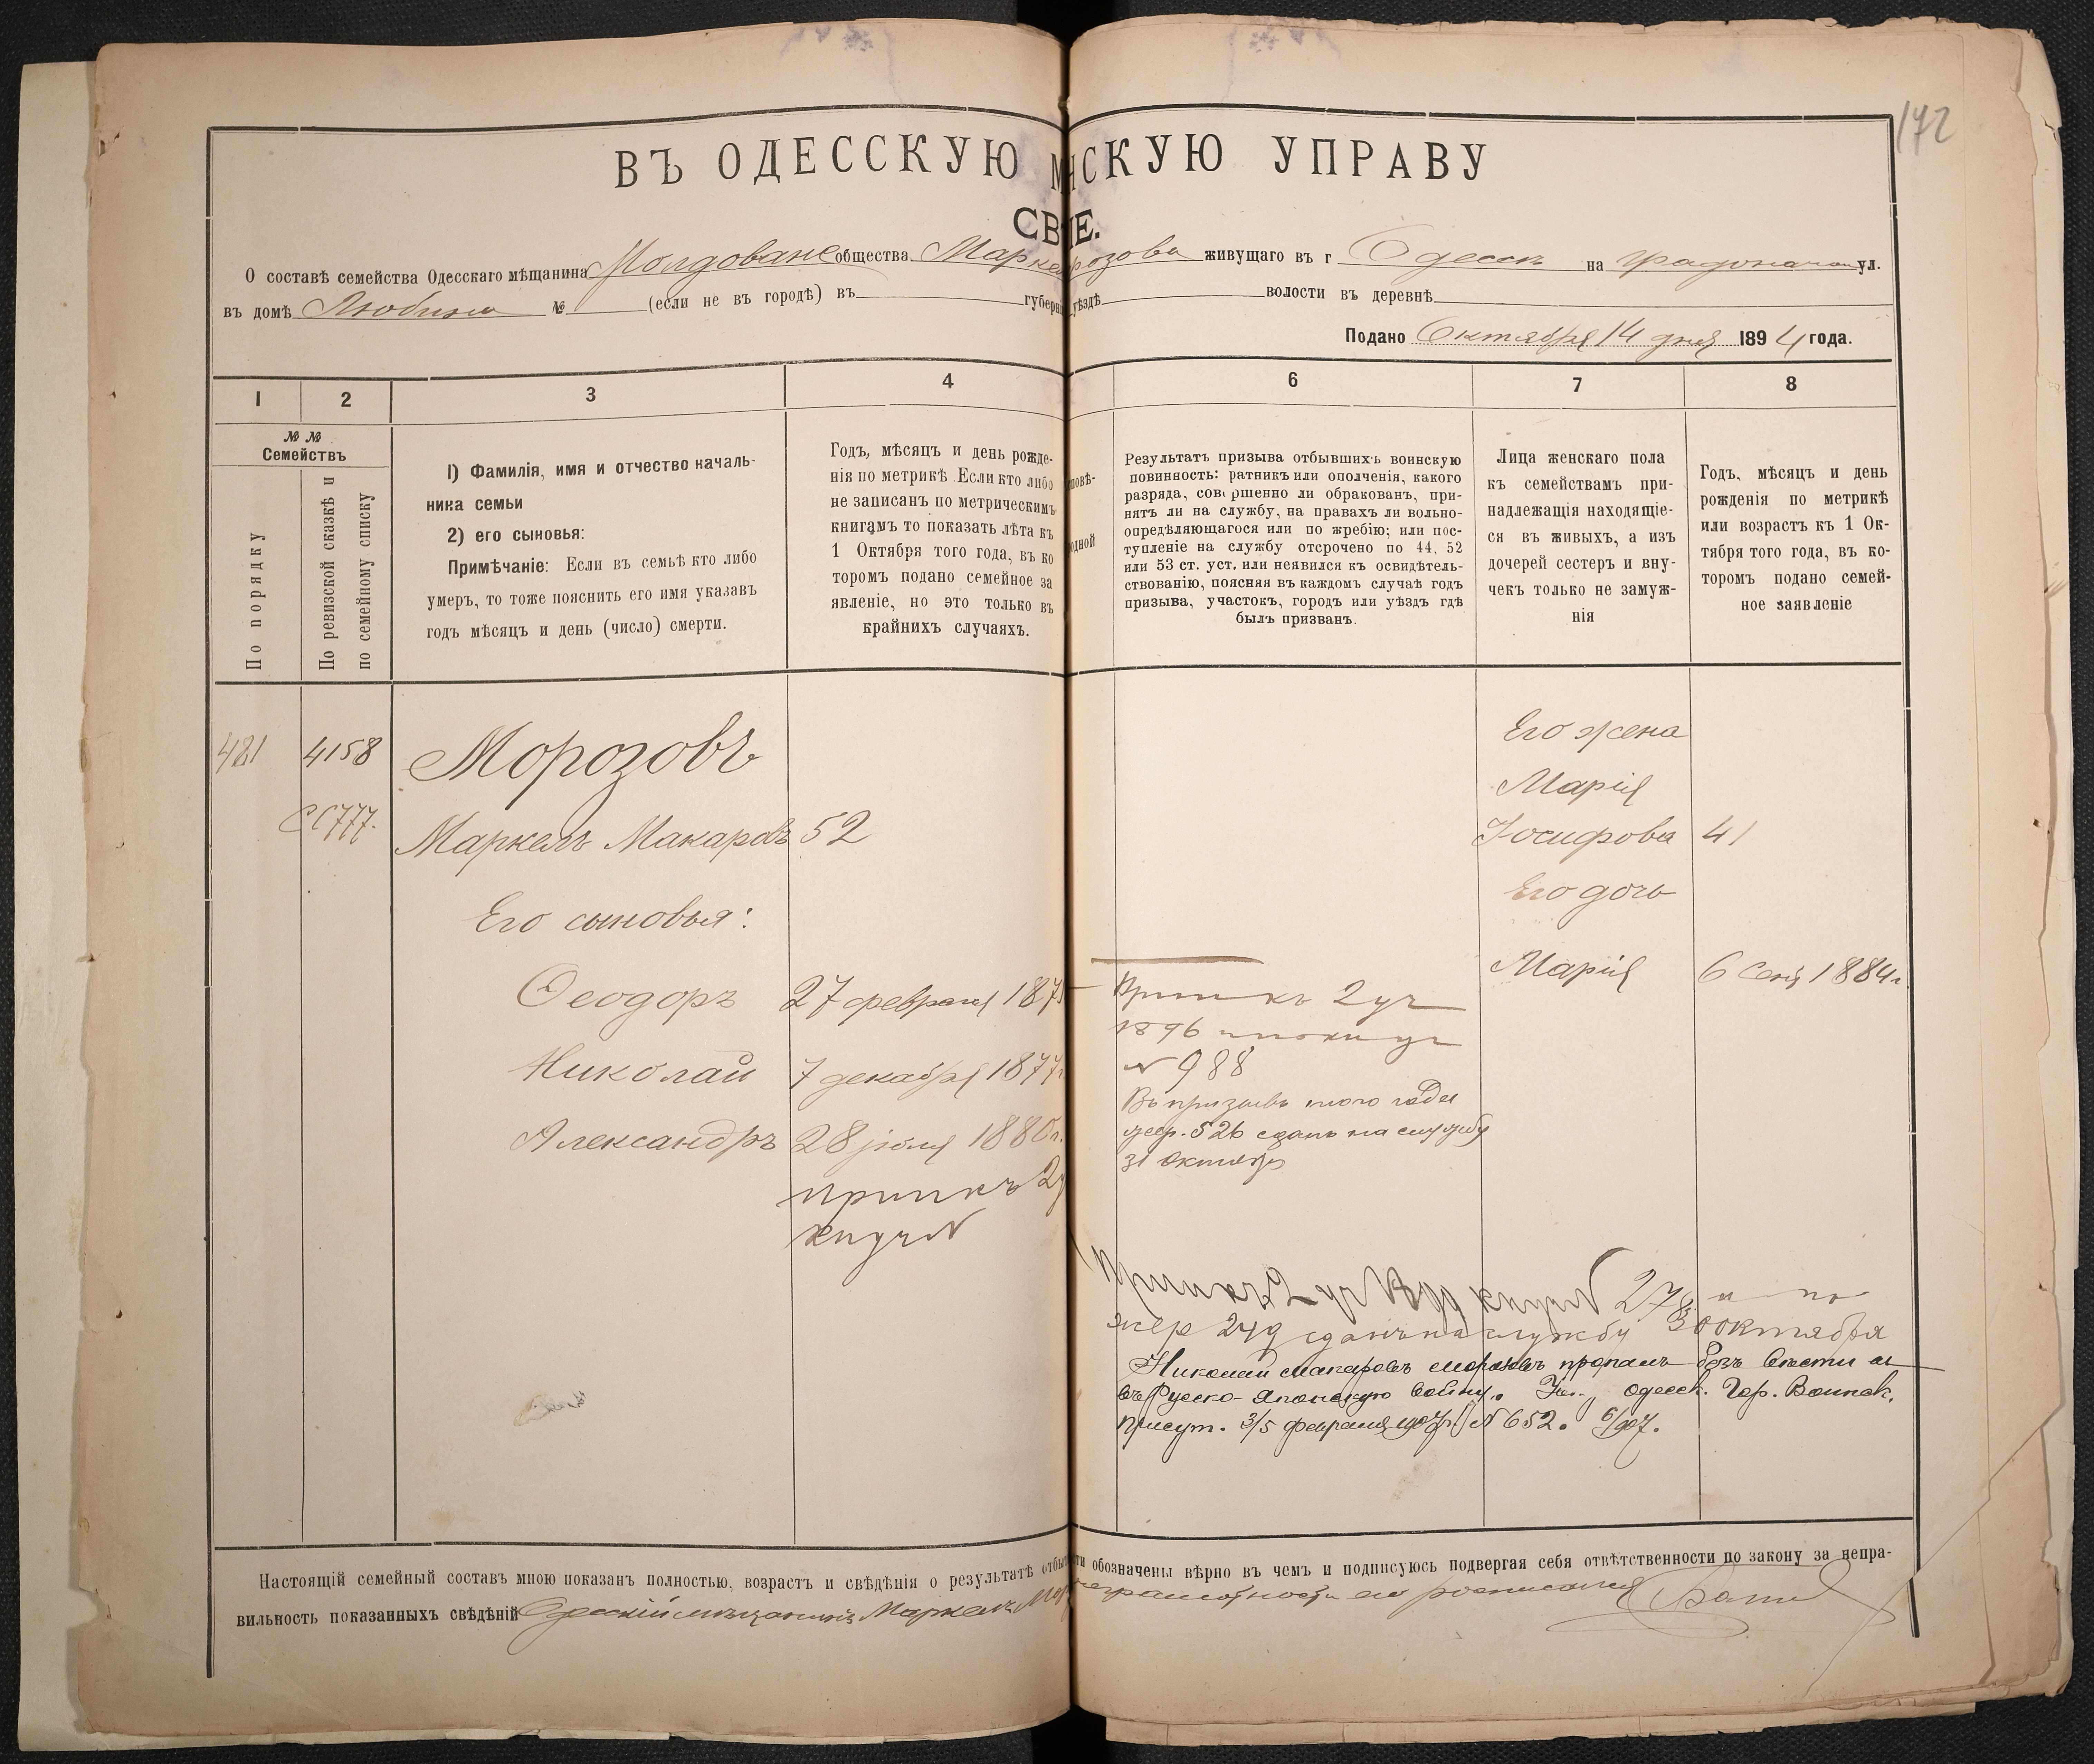 172
ВЪ ОДЕССКУЮ М НСКУЮ УПРАВУ
СВ ІЕ.
О составѣ семейства Одесскаго мѣщанина Молдованс общества Марке розова живущаго въ г Одессѣ на Градонач ул.
въ домѣ Любина № (если не въ городѣ) въ губерн уѣздѣ волости въ деревнѣ
Подано Октября 14 дня 1894 года.
1 2 3 4 6 7 8
№ №
Семействъ
По порядку
По ревизской сказкѣ и
по семейному списку
1) Фамилія, имя и отчество началь-
ника семьи
2) его сыновья:
Примѣчаніе: Если въ семьѣ кто либо
умеръ, то тоже пояснить его имя указавъ
годъ мѣсяцъ и день (число) смерти.
Годъ, мѣсяцъ и день рожде-
нія по метрикѣ. Если кто либо
не записанъ по метрическимъ
книгамъ то показать лѣта къ
1 Октября того года, въ ко
торомъ подано семейное за
явленіе, но это только въ
крайнихъ случаяхъ.
повѣ-
одной
Результатъ призыва отбывшихъ воинскую
повинность: ратникъ или ополченія, какого
разряда, совершенно ли обракованъ, при-
нятъ ли на службу, на правахъ ли вольно-
опредѣляющагося или по жребію; или пос-
тупленіе на службу отсрочено по 44, 52
или 53 ст. уст. или неявился къ освидѣтель-
ствованію, поясняя въ каждомъ случаѣ годъ
призыва, участокъ, городъ или уѣздъ гдѣ
былъ призванъ.
Лица женскаго пола
къ семействамъ при-
надлежащія находящіе-
ся въ живыхъ, а изъ
дочерей сестеръ и вну-
чекъ только не замуж-
нія
Годъ, мѣсяцъ и день
рожденія по метрикѣ
или возрастъ къ 1 Ок-
тября того года, въ ко-
торомъ подано семей-
ное заявленіе
481 4158 Морозовъ
СС777. Маркелъ Макаровъ 52
Его сыновья:
Ѳеодоръ 27 февраля 187
Николай 7 декабря 1877
Александръ 28 іюля 1880 г.
припискъ 2
книги №
Его жена
Марія
Іосифова 41
Его дочь
Марія 6 Сент 1884 г.
Припискъ 2 уч
1896
№ 988
Въ призывъ того года
жер. 526 сданъ на службу
31 октября
2 уч 278 и по
жер 249 сданъ на службу 30 октября
Николай Макаровъ Морозовъ пропалъ безъ вѣсти
въ Русско-Японскую войну. Одесск. Гор. Воинск.
Присут. 3/5 февраля 1907 г. № 652. 6/907.
Настоящій семейный составъ мною показанъ полностью, возрастъ и свѣдѣнія о результатѣ отбы ти обозначены вѣрно въ чемъ и подписуюсь подвергая себя отвѣтственности по закону за непра-
вильность показанныхъ свѣдѣній Одесскій мѣщанинъ Маркелъ Мор неграмотности его росписался